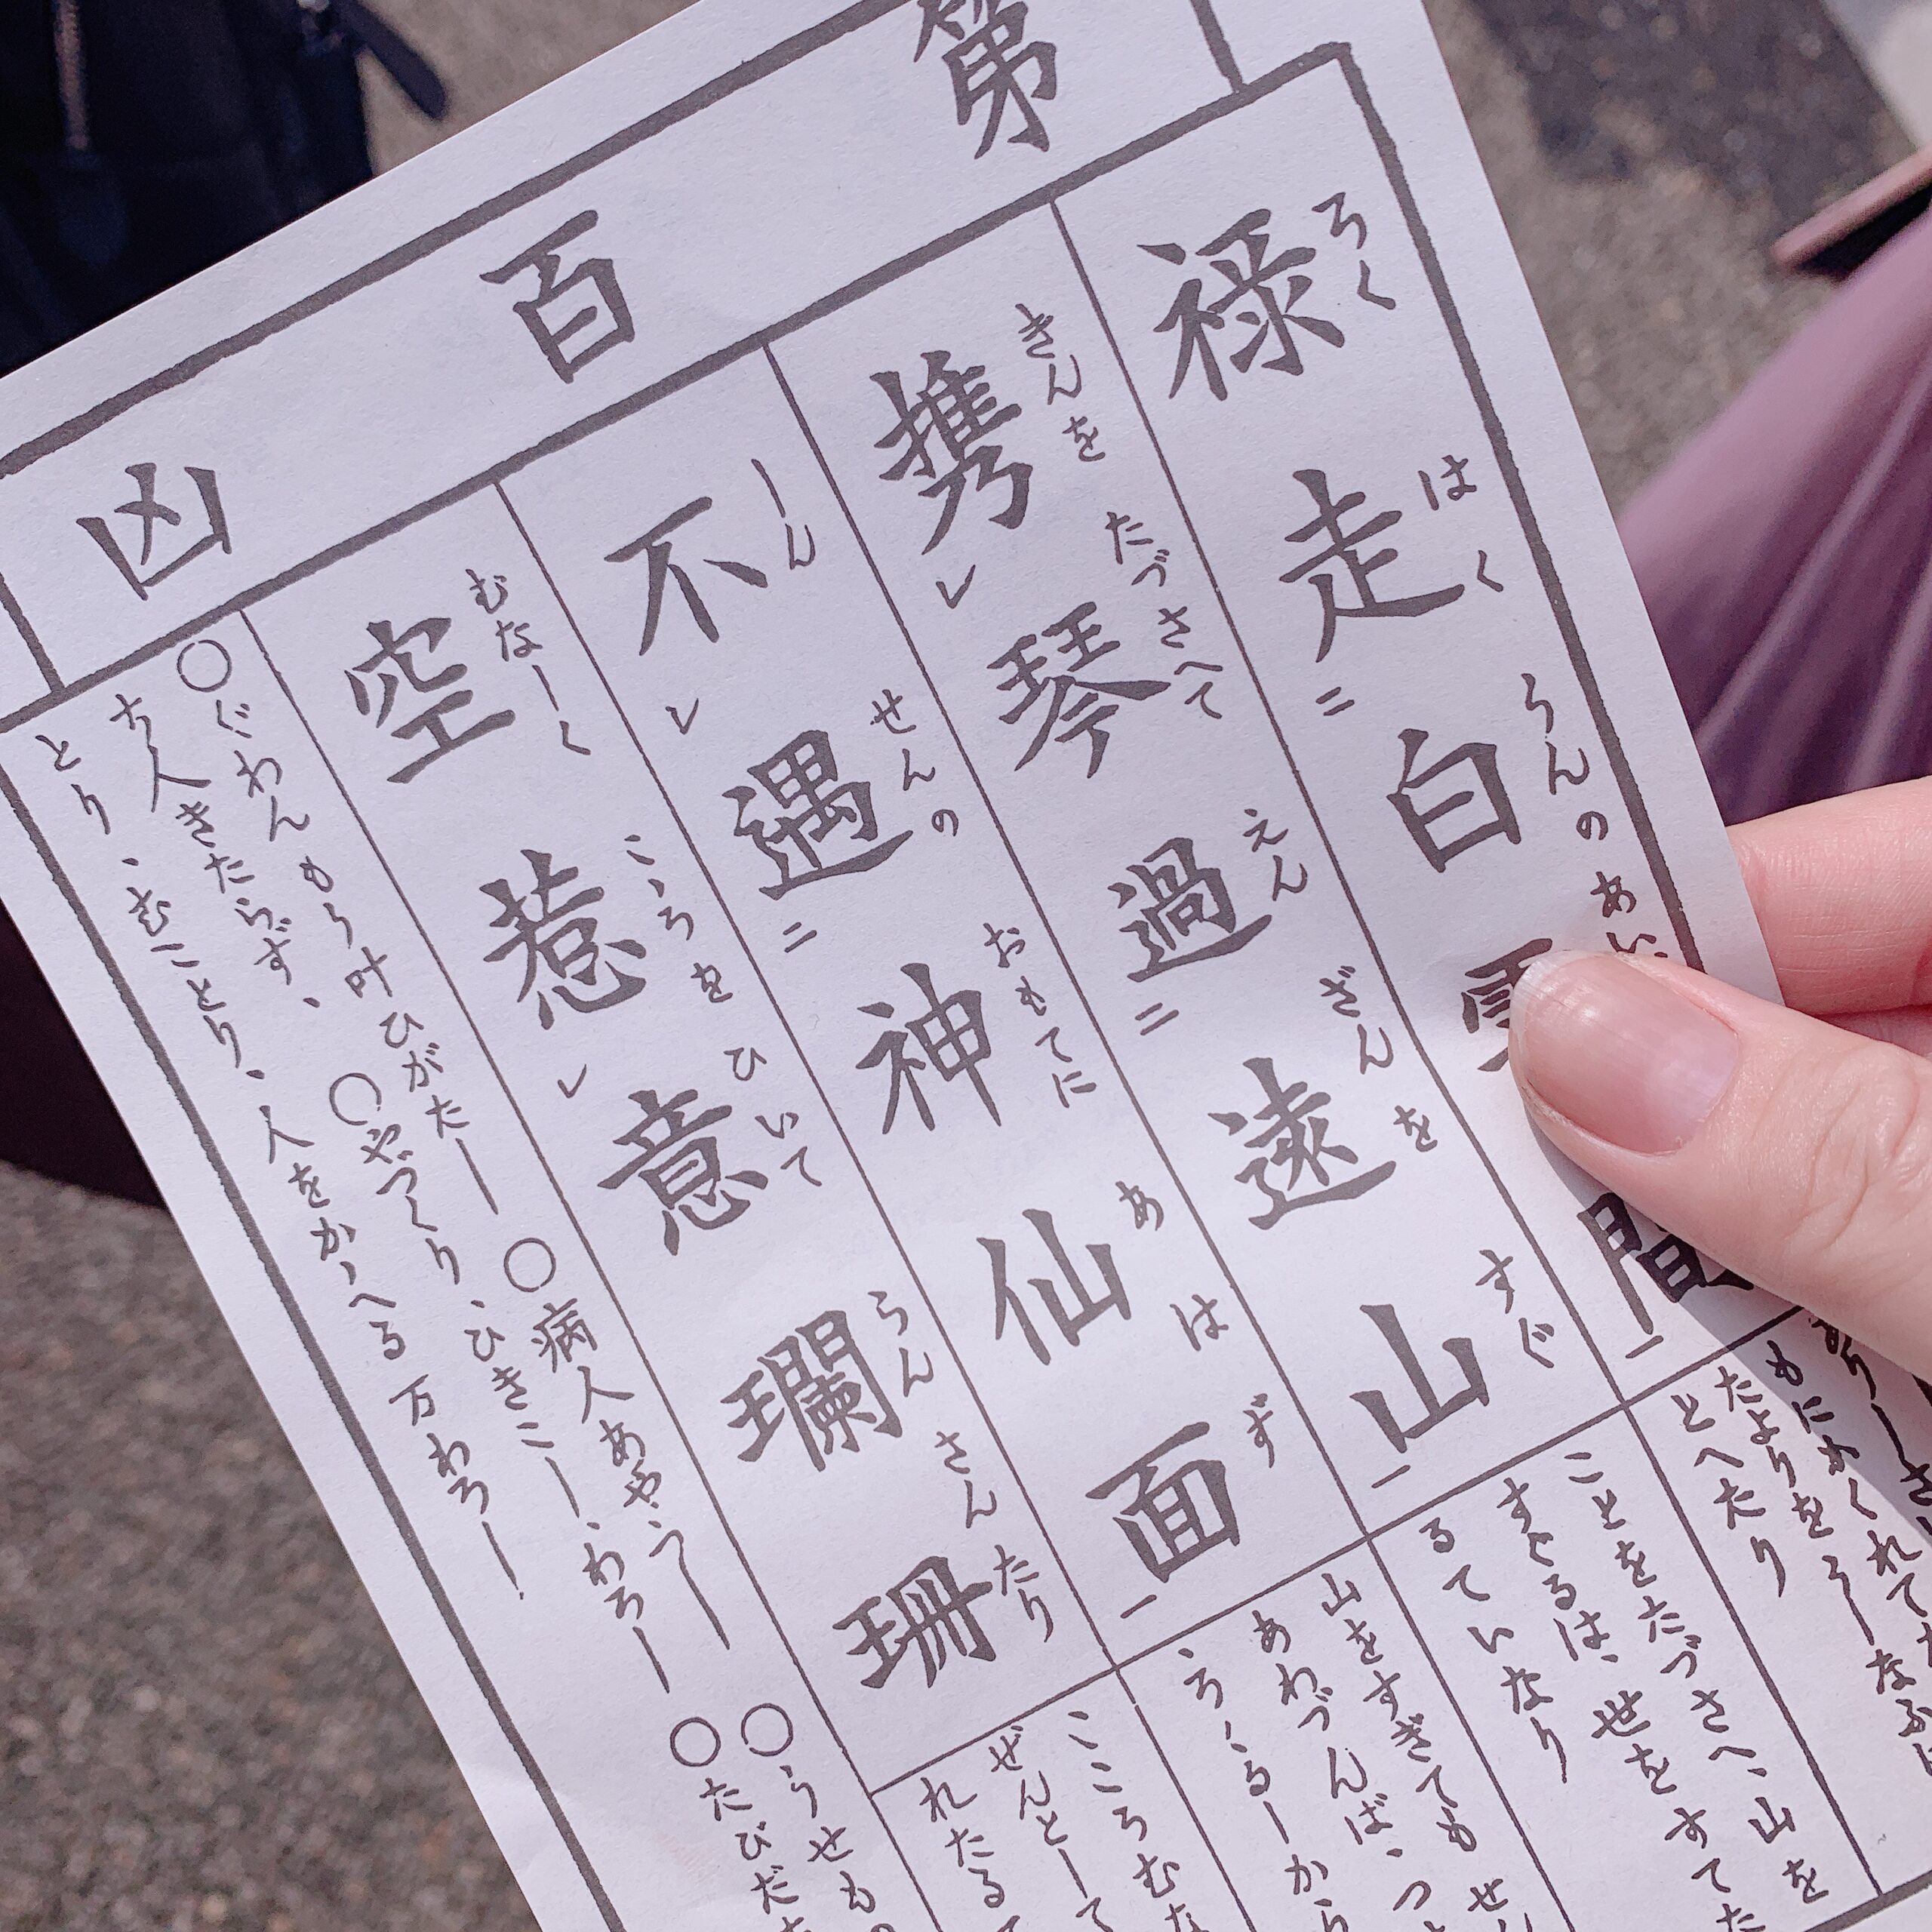 第百凶
禄走二白雲間一
ろくはくうんのあい
携レ琴過二遠山一
きんをたづさへてえんざんをすぐ
不レ遇二神仙面一
しんせんのおもてにあはず
空惹レ意瓓珊
むなしくこゝろをひいてらんさんたり
もにかくれて
たよりをうしなふ
とへたり
ことをたづさへ、山を
すぐるは、世をすてた
るていなり
山をすぎてもせん
あわづんば、つ
ろゝるしから
こころむな
ぜんとして
れたるて
○ぐわんもう叶ひがたし○病人あやうし○うせもの
ち人きたらず、○やづくり、ひきこし、わろし○たびだち
とり、むことり、人をかゝへる万わろし